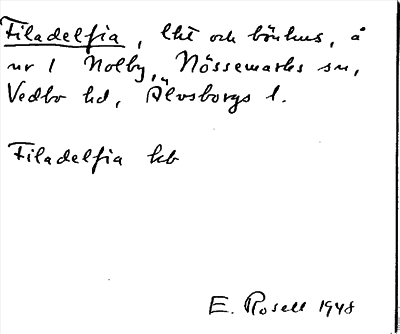 Filadelfia, lht och bönhus, å
nr 1 Nolby, Nössemarks sn,
Vedbo hd, Älvsborgs l.
Filadelfia kb
E. Rosell 1948